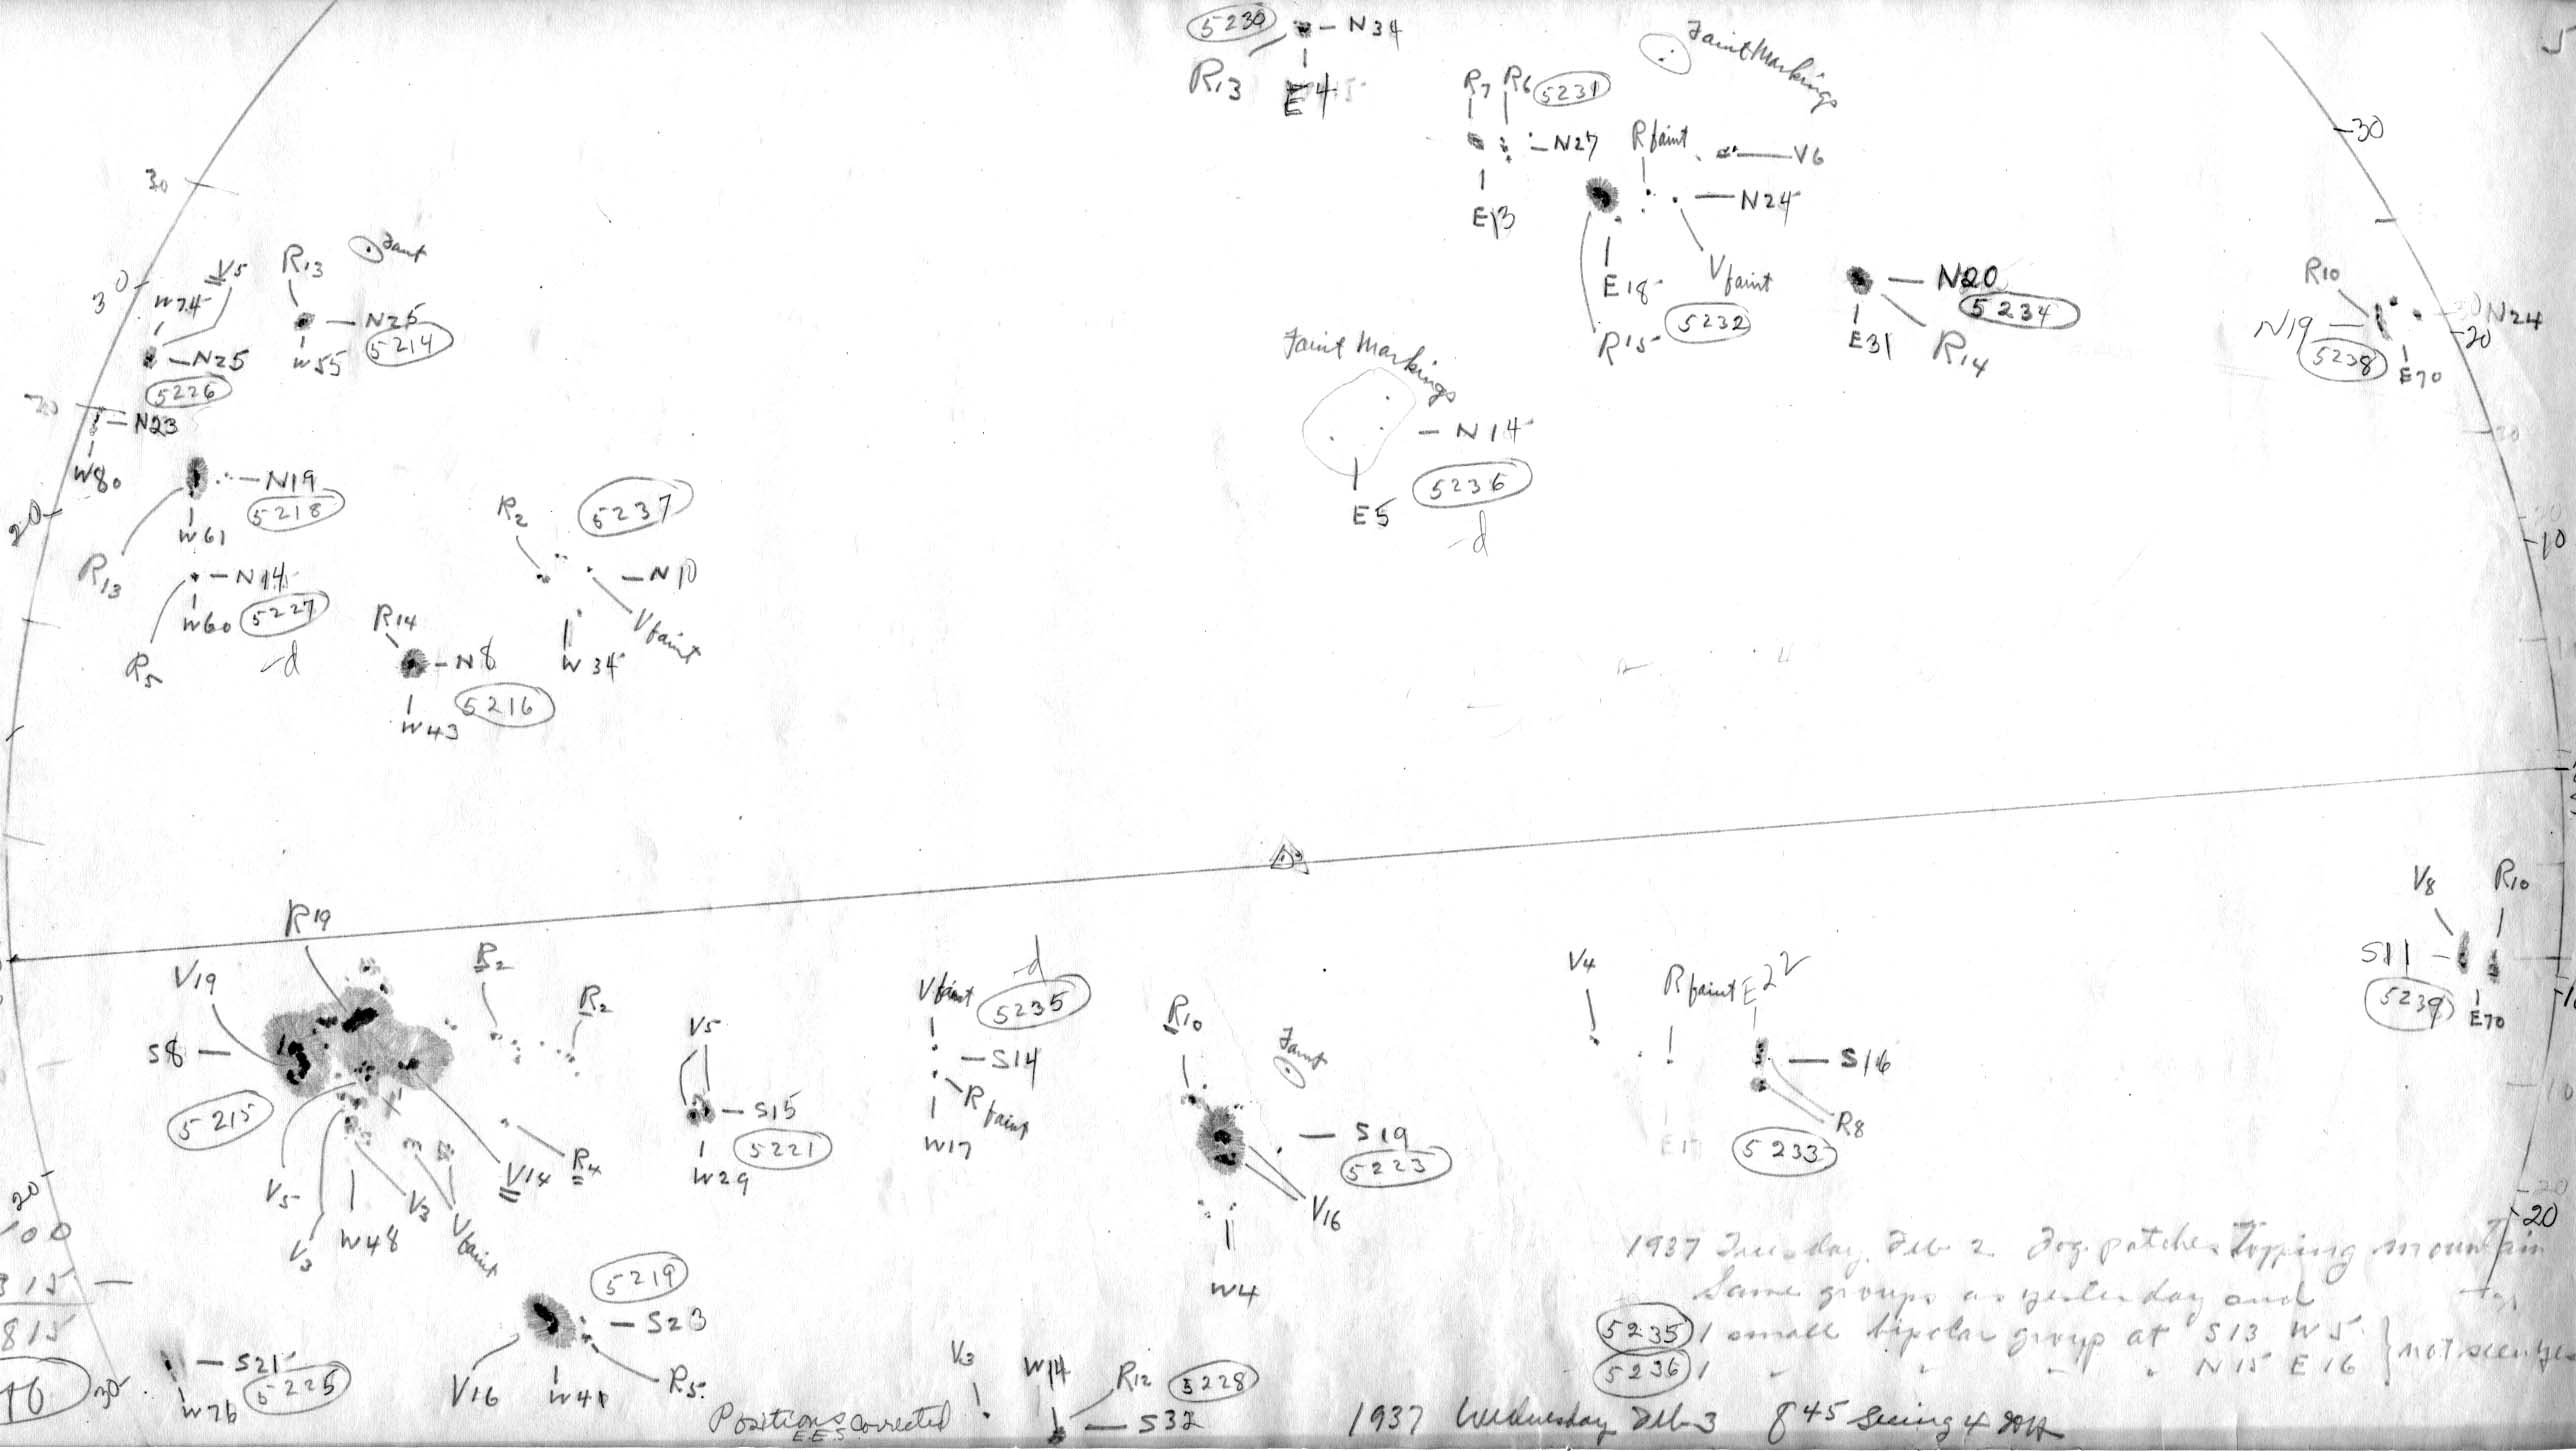 5230 N34
R13 E4
Faint Markings
R7 R6 5231
N27
E13
R faint V6
N24
E18
V faint
R15 5232
N20
5234
E31 R14
30
R10
N19 N24
5238 20
E70
30
30
V5 R13 Faint
W74
N25
W55 5214
N25
5226
N23
W80
N19
5218
20 W61
R13
N14
W60 5227
R5 -d
R2 5237
N10
V faint
W34
R14
N8
5216
W43
Faint Markings
N14
E5 5236
-d
10
R19
V19
S8
5215
R2
R2
V5
V3
W48
V3
V faint
V14
R4
V5
S15
5221
W29
-d
V faint 5235
S14
R faint
W17
R10
Faint
S19
5223
V16
W4
V4
R faint E22
S16
R8
E17
5233
V8 R10
S11
5239 E70
10
20
20
20
100
315
815
30
5219
S23
V16 W41 R5
S21
5225
W76
V3
W14
R12 5228
S32
Positions corrected
EES
1937 Tuesday, Feb. 2 Fog patches topping mountain
Same groups as yesterday and
5235 1 small bipolar group at S13 W5
5236 1 " " " " N15 E16 } not seen
1937 Wednesday Feb 3 8 45 Seeing 4